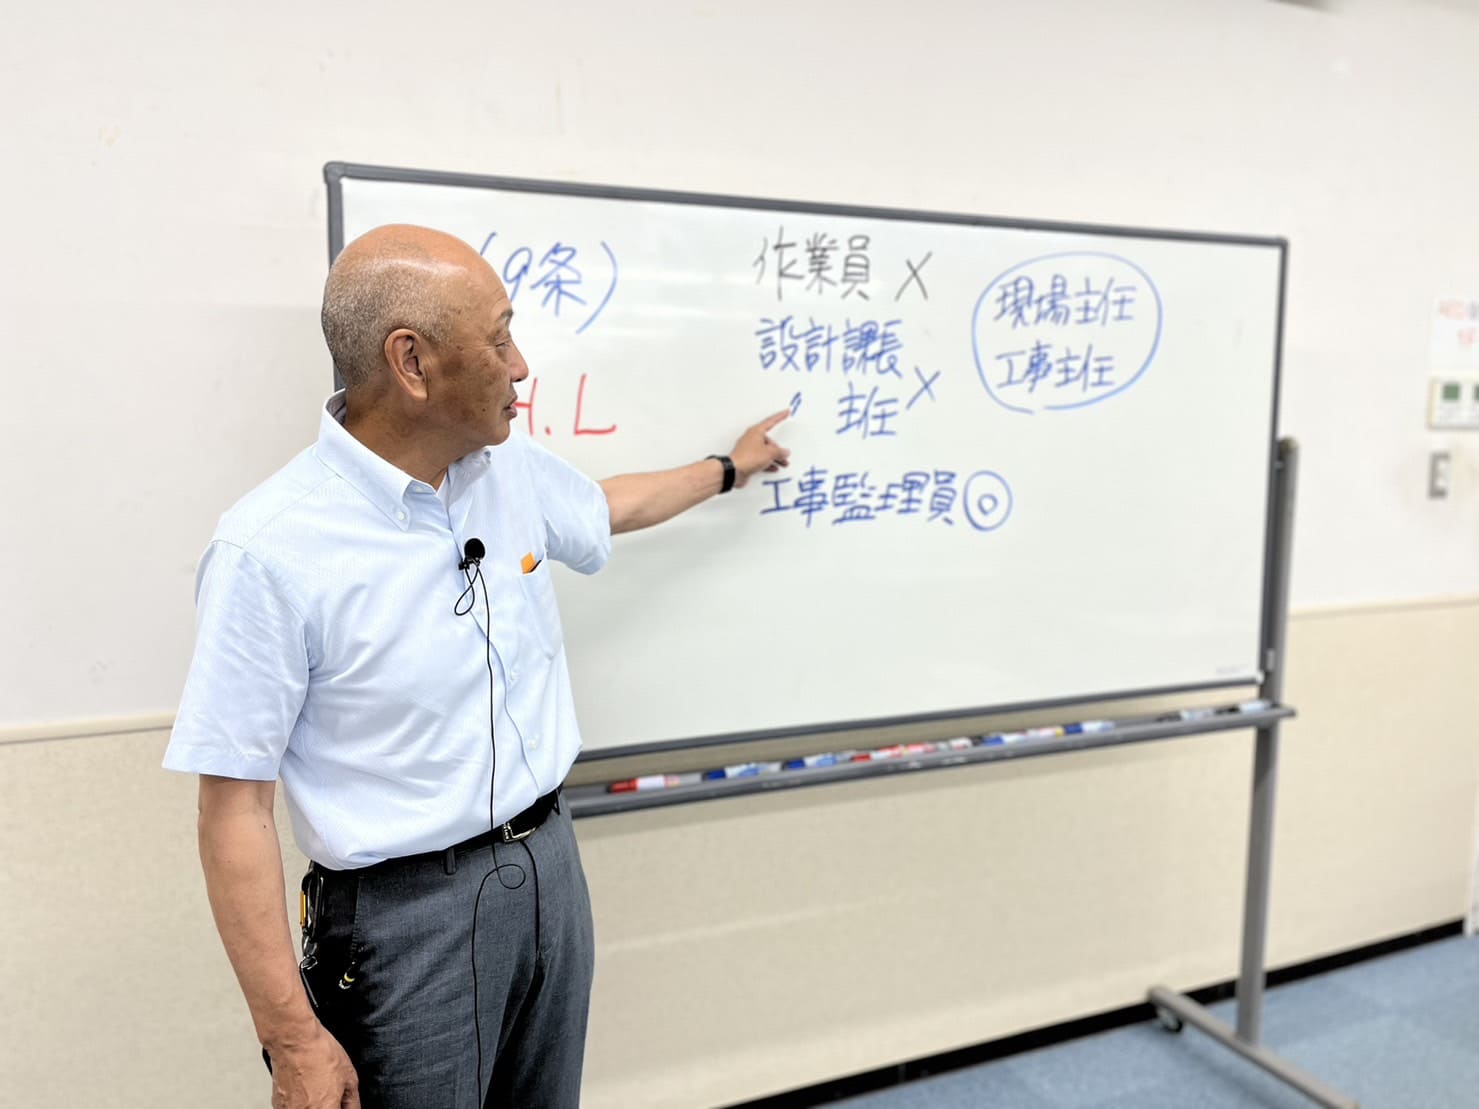 (9条)
H.L
作業員 ×
設計課長
〃 主任 ×
工事監理員 ◎
現場主任
工事主任